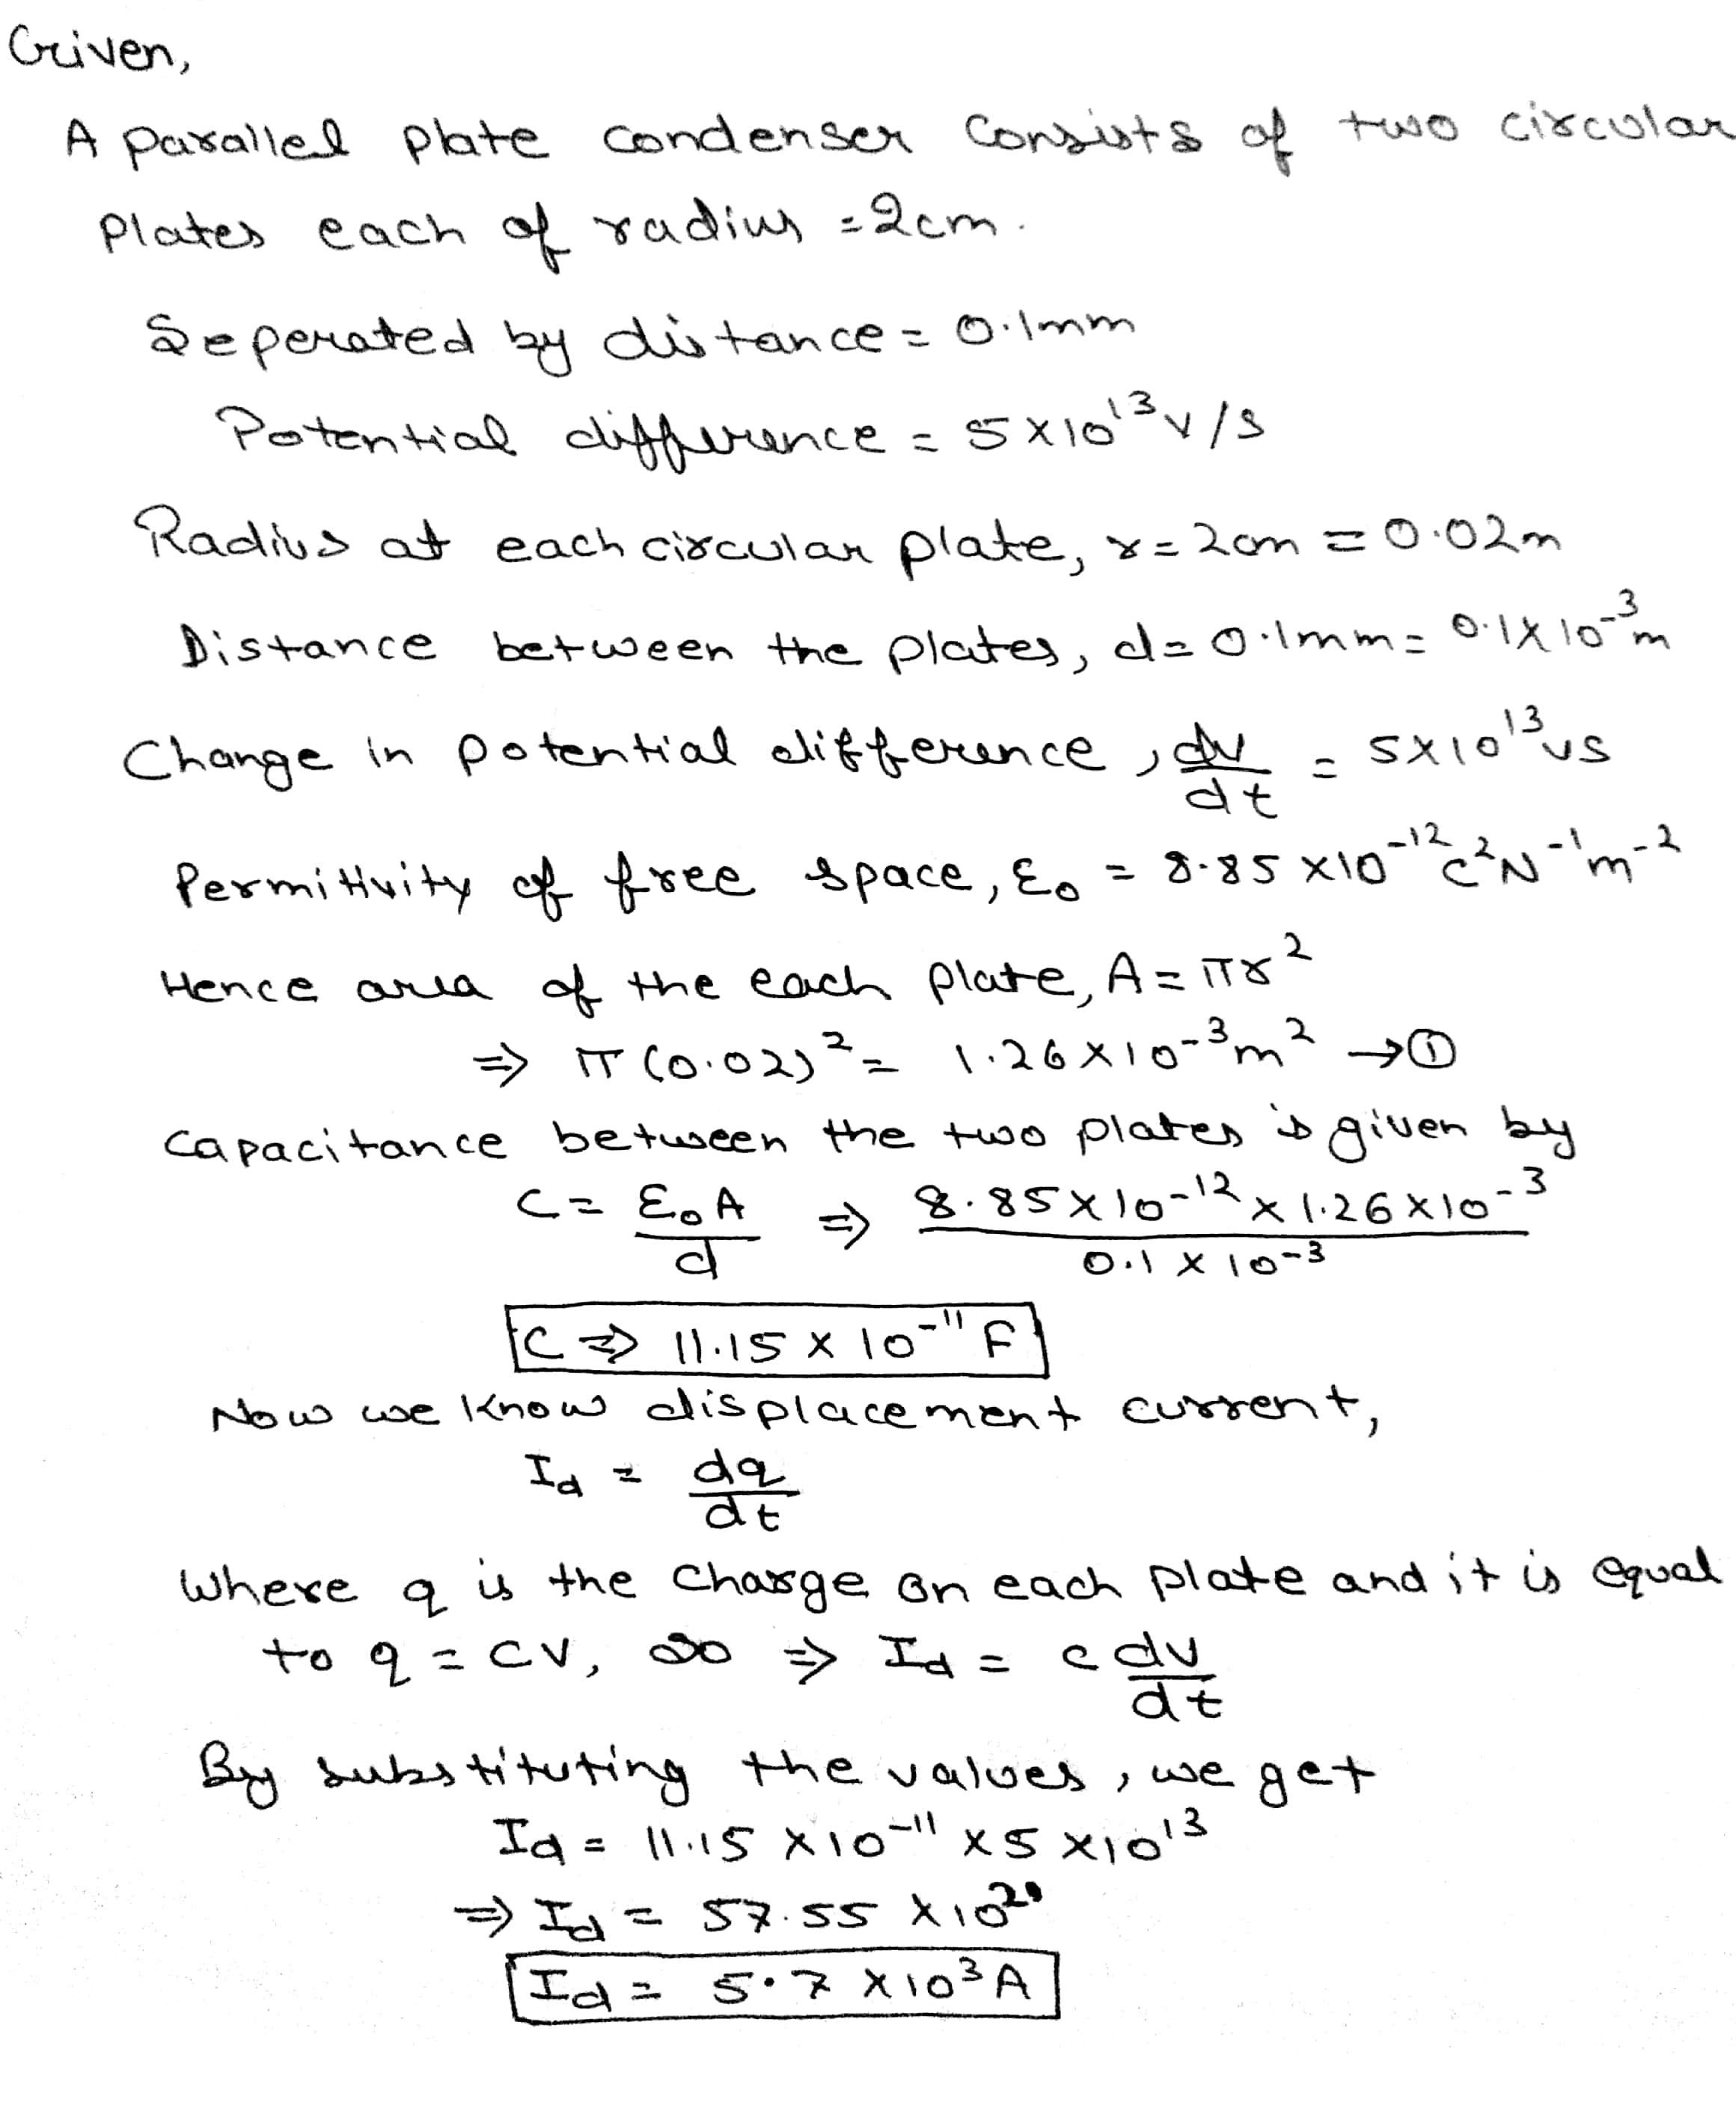 Given,
A parallel plate condenser consists of two circular
plates each of radius = 2cm.
Seperated by distance = 0.1mm
Potential difference = 5×10¹³ V/S
Radius at each circular plate, r = 2cm = 0.02m
Distance between the plates, d = 0.1mm = 0.1×10⁻³m
Change in potential difference, dv/dt = 5×10¹³ vs
Permitivity of free space, ε₀ = 8.85 ×10⁻¹² C²N⁻¹m⁻²
Hence area of the each plate, A = πr²
⇒ π(0.02)² = 1.26×10⁻³m² → ①
Capacitance between the two plates is given by
C = ε₀A/d ⇒ 8.85×10⁻¹² × 1.26×10⁻³ / 0.1 × 10⁻³
C ⇒ 11.15 × 10⁻¹¹ F
Now we know displacement current,
Id = dq/dt
Where q is the charge on each plate and it is equal
to q = CV, so ⇒ Id = c dv/dt
By substituting the values, we get
Id = 11.15 ×10⁻¹¹ ×5 ×10¹³
⇒ Id = 57.55 ×10²
Id = 5.7 ×10³ A